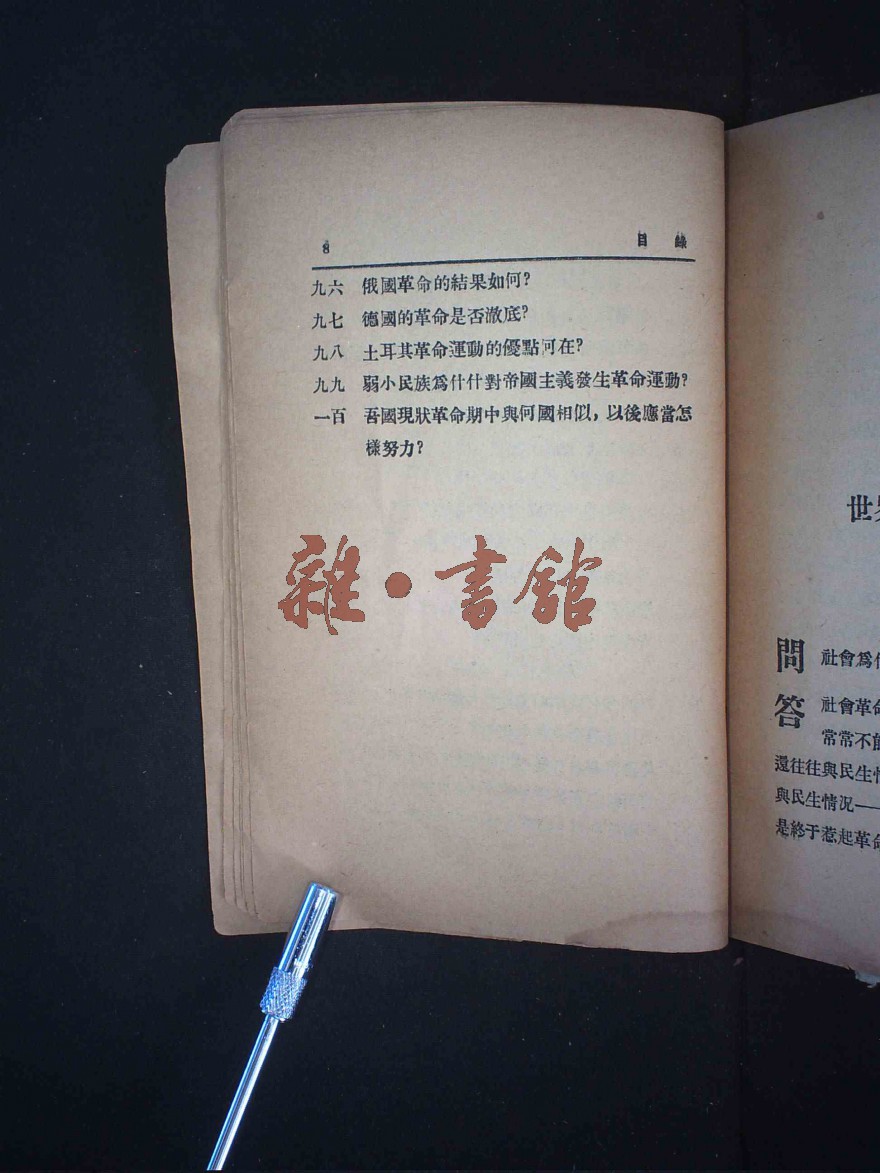 8 目錄
九六 俄國革命的結果如何?
九七 德國的革命是否澈底?
九八 土耳其革命運動的優點何在?
九九 弱小民族爲什什對帝國主義發生革命運動?
一百 吾國現狀革命期中與何國相似，以後應當怎
樣努力?
雜•書舘
世
問 社會爲
答 社會革命
常常不能
還往往與民生情
與民生情况——
是終于惹起革命